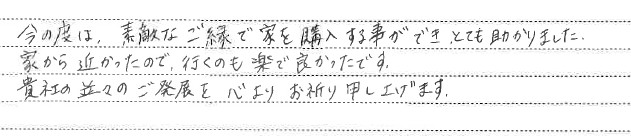 今の度は、素敵なご縁で家を購入する事ができ、とても助かりました.
家から近かったので、行くのも楽で良かったです.
貴社の益々のご発展を心よりお祈り申し上げます.